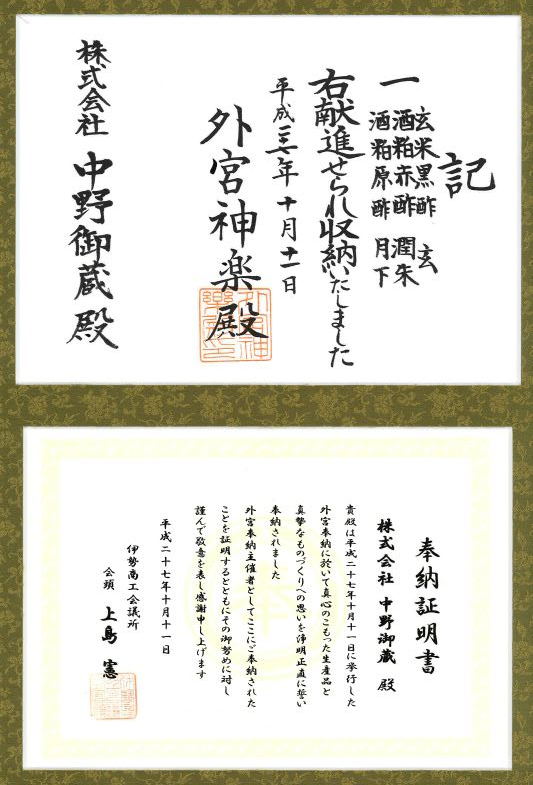 記
一 玄米黒酢 玄
酒粕赤酢 潤朱
酒粕原酢 月下
右献進せられ収納いたしました
平成二十七年十月十一日
外宮神楽殿
株式会社 中野御蔵殿
奉納証明書
株式会社 中野御蔵 殿
貴殿は平成二十七年十月十一日に挙行した
外宮奉納に於いて真心のこもった生産品と
真摯なものづくりへの思いを浄明正直に誓い
奉納されました
外宮奉納主催者としてここにご奉納された
ことを証明するとともにその御努めに対し
謹んで敬意を表し感謝申し上げます
平成二十七年十月十一日
伊勢商工会議所
会頭 上島 憲